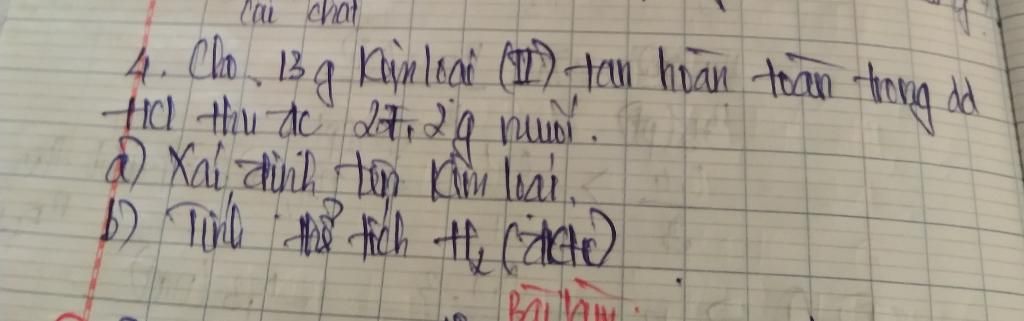 cái chất
4. Cho 13 g kim loại (II) tan hoàn toàn trong dd
HCl thu đc 27,2g muối.
a) Xác định tên kim loại.
b) Tính thể tích H₂ (đktc)
Bài làm